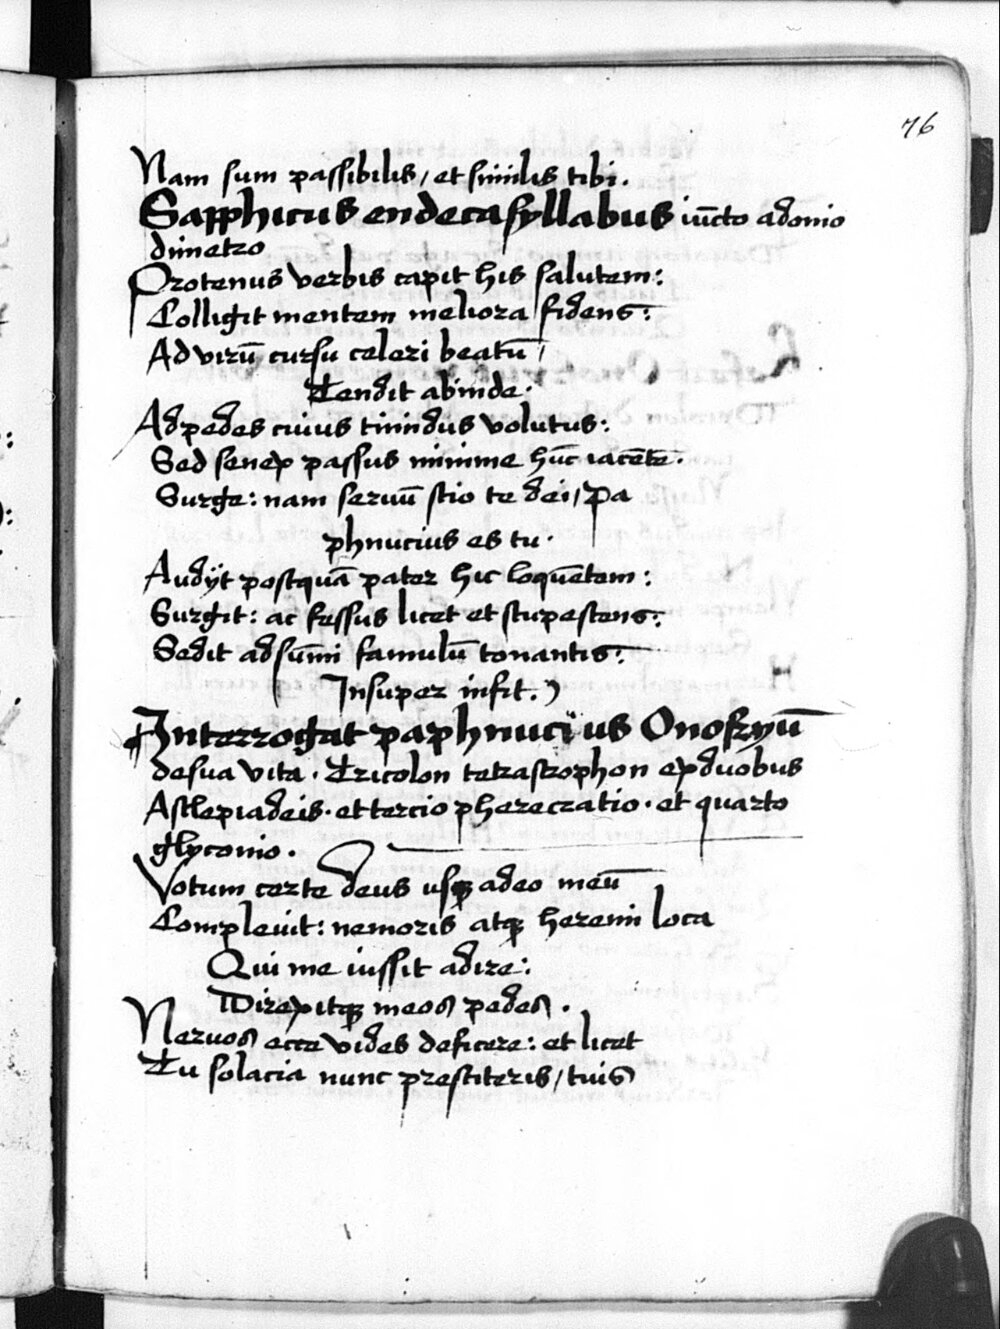 76
Nam sum passibilis / et similis tibi.
Sapphicus endecasyllabus iūcto adonio
dimetro
Protenus verbis capit his salutem:
Colligit mentem meliora fidens:
Ad virū cursu celeri beatū /
Tendit abinde:
Ad pedes cuius timidus volutus:
Sed senex passus minime hūc iacēte:
Surge: nam seruū scio te dei / Pa
phnucius es tu.
Audijt postquā pater hic loquētem:
Surgit: ac fessus licet et stupescens:
Sedit ad sūmi famulū tonantis:
Insuper infit.
Interrogat paphnucius Onofryū
de sua vita. Tricolon tetrastrophon ex duobus
Asclepiadeis. et tercio pherecratio. et quarto
glyconio.
Votum certe deus usq; adeo meū
Complevit: nemoris atq; heremi loca
Qui me iussit adire:
Direxitq; meos pedes.
Nervos ecce vides deficere: et licet
Tu solacia nunc prestiteris / tuis